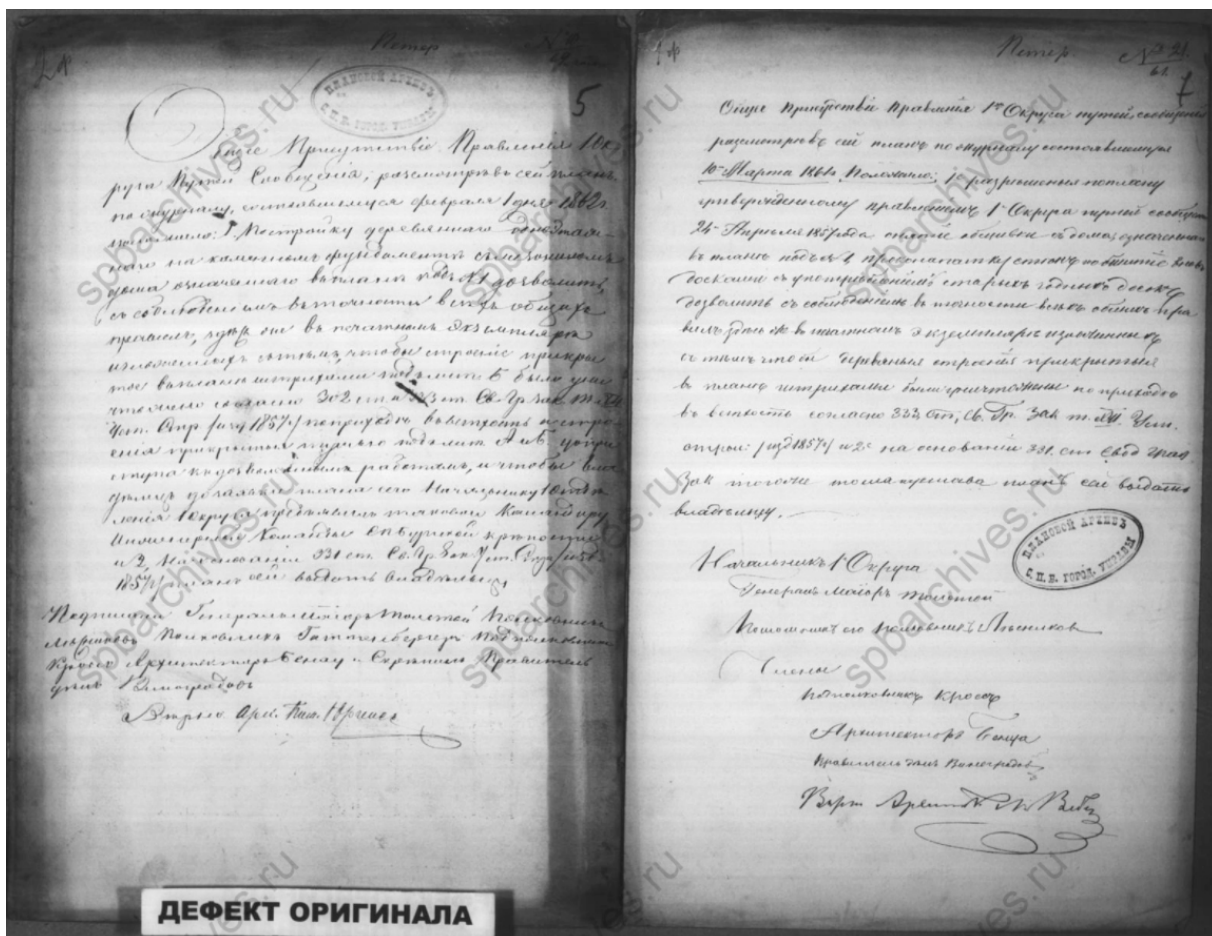 2 ф.
Петер
№
ПЛАНОВОЙ АРХИВЪ
С. П. Б. ГОРОД. УПРАВЫ
5
Общее Присутствіе Правленія 1 Ок-
руга Путей Сообщенія, разсмотрѣвъ сей планъ
по журналу, состоявшемуся февраля 1 дня 1862 г.
положило: 1, Постройку деревяннаго одноэтаж-
наго на каменномъ фундаментѣ съ мезониномъ
дома означеннаго въ планѣ подъ № 1 дозволить,
съ соблюденіемъ въ точности всѣхъ общихъ
правилъ, здѣсь же въ печатномъ экземплярѣ
изложенныхъ съ тѣмъ, чтобы строеніе прикры
тое въ планѣ штрихами подъ лит. Б было уни
чтожено согласно 302 ст. и 333 ст. Св. Гр. Зак. т. XII
Уст. Стр. /изд. 1857 г./ по приходѣ въ ветхость, а стро-
енія прикрытыя подъ лит. А и В. до при
ступа къ дозволеннымъ работамъ, и чтобы вла
дѣлецъ до начала сего Начальнику 1 Отдѣ
ленія 1 Округа предъявилъ таковой Командиру
Инженерной Команды СПбургской крѣпости
и 2, На основаніи 331 ст. Св. Гр. Зак. Уст. Стр. /изд.
1857 г./ планъ сей выдать владѣльцу
Подписали Генералъ-Маіоръ Толстой Полковникъ
Полковникъ Гаттенбергеръ Подполковникъ
Кроссъ Архитекторъ Бенуа и Скрѣпилъ Правитель
дѣлъ Виноградовъ
Вѣрно Арх. Пом.
ДЕФЕКТ ОРИГИНАЛА
1 ф
Петер
№ 21
61.
1
Общее Присутствіе Правленія 1го Округа путей сообщенія
разсмотрѣвъ сей планъ по журналу состоявшемуся
10го Марта 1861 г. Положило: 1, разрѣшенныя по плану
утвержденному правленіемъ 1го Округа путей сообщ.
24 Апрѣля 1857 года обшивок дома, означеннаго
въ планѣ подъ № 1 и стѣнъ по обшивкѣ вновь
досками съ употребленіемъ старыхъ годныхъ досокъ
дозволить съ соблюденіемъ въ точности всѣхъ общихъ пра
вилъ здѣсь же въ печатномъ экземплярѣ изложенныхъ
съ тѣмъ чтобы деревянныя строенія прикрытыя
въ планѣ штрихами были уничтожены по приходѣ
въ ветхость согласно 333 ст. Св. Гр. Зак. т. XII. Уст.
строи: /изд. 1857 г./ и 2е на основаніи 331. ст. Свод. Граж.
Зак. того же тома и устава планъ сей выдать
владѣльцу.
ПЛАНОВОЙ АРХИВЪ
С. П. Б. ГОРОД. УПРАВЫ
Начальникъ 1 Округа
Генералъ Маіоръ Толстой
Помощникъ его Полковникъ
Члены
Подполковникъ Кроссъ
Архитекторъ Бенуа
Правитель дѣлъ Виноградовъ
spbarchives.ru